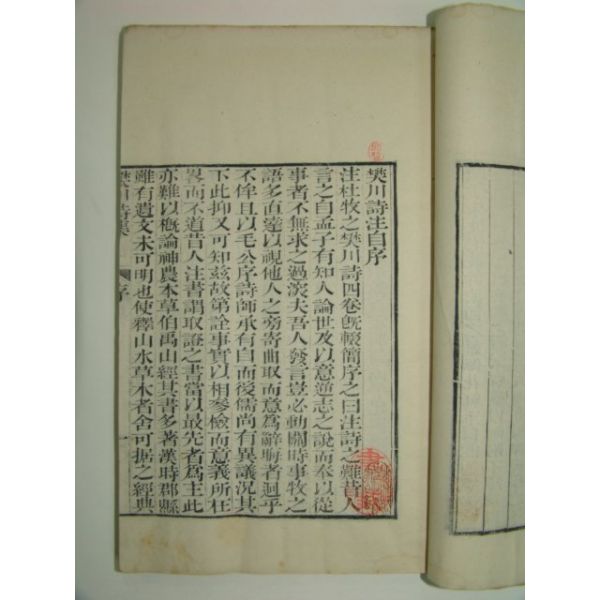 樊川詩注自序
注杜牧之樊川詩四卷旣輟簡序之曰注詩之難昔人
言之自孟子有知人論世及以意逆志之說而奉以從
事者不無求之過深夫吾人發言豈必動關時事牧之
語多直達以視他人之旁寄曲取而意爲辭晦者迥乎
不侔且以毛公序詩師承有自而後儒尚有異議況其
下此抑又可知茲故第詮事實以相參檢而意義所在
畧而不道昔人注書謂取證之書當以最先者爲主此
亦難以槪論神農本草伯禹山經其書多著漢時郡縣
雖有遺文未可明也使釋山水草木者舍可据之經典
樊川詩集
序
一